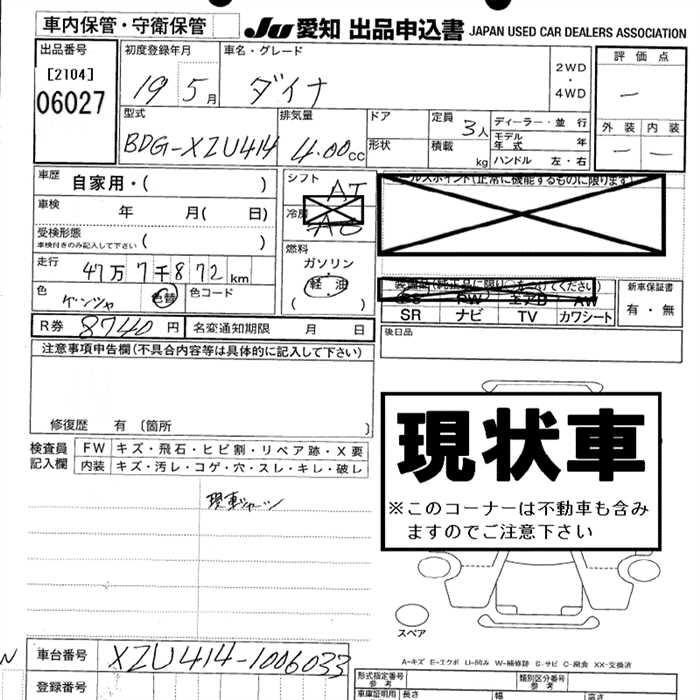 車内保管・守衛保管
JU 愛知 出品申込書 JAPAN USED CAR DEALERS ASSOCIATION
出品番号
[2104]
06027
初度登録年月
19 5月
車名・グレード
ダイナ
2WD
・
4WD
評価点
―
外装 内装
― ―
型式
BDG-XZU414
排気量
4.00cc
ドア
形状
定員
3人
積載
kg
ディーラー・並行
モデル年式 年
ハンドル 左・右
車歴
自家用・( )
車検
年 月( 日)
受検形態
車検付きのみ記入して下さい ( )
走行
47万7千872km
色
色替
色コード
シフト
AT
冷房
AC
燃料
ガソリン
軽油
( )
セールスポイント(正常に機能するものに限ります)
PS PW エアB AW
SR ナビ TV カワシート
新車保証書
有・無
後日品
R券 8740円
名変通知期限 月 日
注意事項申告欄(不具合内容等は具体的に記入して下さい)
修復歴 有〔箇所 〕
検査員記入欄
FW キズ・飛石・ヒビ割・リペア跡・X要
内装 キズ・汚レ・コゲ・穴・スレ・キレ・破レ
現状車
※このコーナーは不動車も含み
ますのでご注意下さい
スペア
A-キズ E-エクボ U-凹み W-補修跡 S-サビ C-腐食 XX-交換済
N
車台番号
XZU414-1006033
登録番号
形式指定番号
参考
類別区分番号
参考
車庫証明用
参考
長さ
幅
高さ